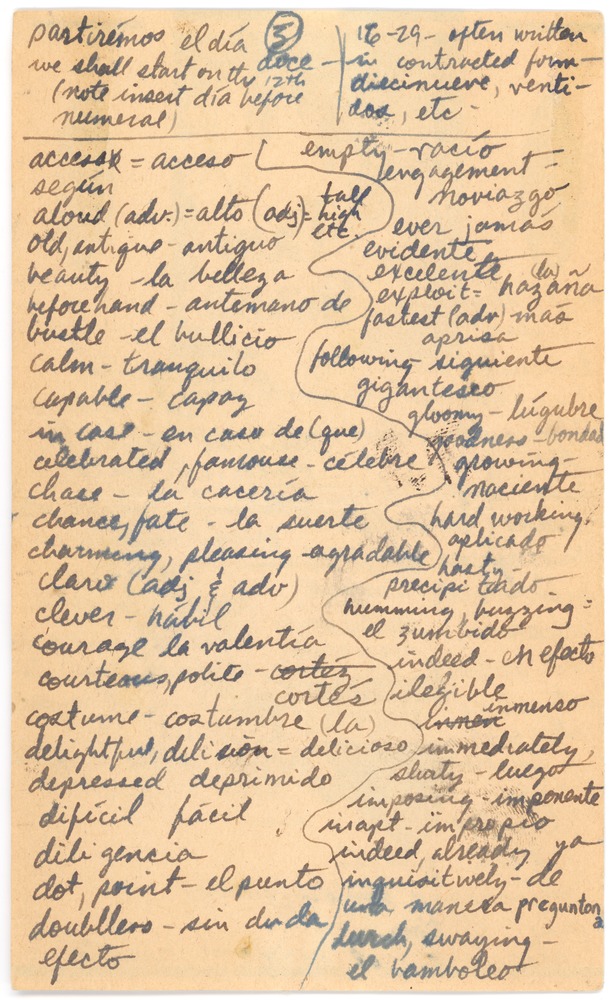 partirémos el día doce
we shall start on th 12th
(note insert día before
numeral)
3
16-29- often written
in contracted form-
diecinueve, venti-
dos, etc-
access = acceso
según
aloud (adv.)=alto (adj= tall
high
etc.
old, antique - antiguo
beauty - la belleza
beforehand - antemano de
bustle - el bullicio
calm - tranquilo
capable - capaz
in case - en caso de (que)
celebrated, famouse - célebre
chase - la cacería
chance, fate - la suerte
charming, pleasing - agradable
claro (adj & adv)
clever - hábil
courage la valentía
courteous, polite - cortéz
cortés
costume - costumbre (la)
delightful, delision = delicioso
depressed deprimido
difícil fácil
diligencia
dot, point - el punto
doubtless - sin duda
efecto
empty - vacío
engagement -
noviazgo
ever jamás
evidente
excelente
exploit = hazaña (la)
fastest (adv) - más
aprisa
following siguiente
gigantesco
gloomy - lúgubre
goodness - bondad
growing -
naciente
hard working
aplicado
hasty -
precipitado
humming, buzzing =
el zumbido
indeed - en efecto
ilegible
inmenso
immediately,
shaty - luego
imposing - imponente
inapt - impropio
indeed, already ya
inquisitively - de
una manera preguntona
lurch, swaying -
el bamboleo